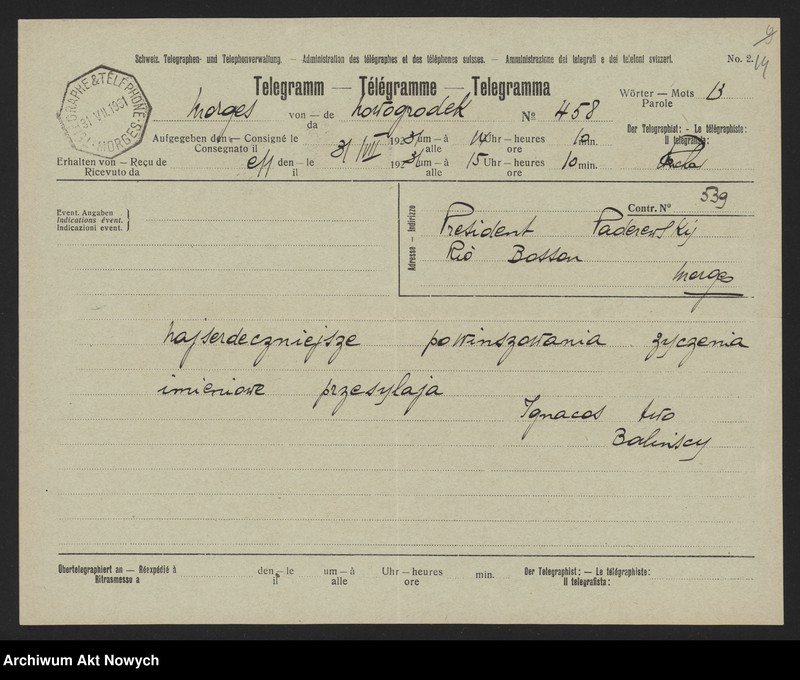 9
14
Schweiz. Telegraphen- und Telephonverwaltung. — Administration des télégraphes et des téléphones suisses. — Amministrazione dei telegrafi e dei telefoni svizzeri. No. 2.
TÉLÉGRAPHE & TÉLÉPHONE
31.VII.1931
MORGES
Telegramm — Télégramme — Telegramma
Wörter — Mots 13
Parole
Morges von — de Nowogrodek № 458
da
Aufgegeben den — Consigné le 31/VII 1931 um — à 14 Uhr — heures 10 min.
Consegnato il alle ore
Der Telegraphist: - Le télégraphiste:
Il telegrafista:
Erhalten von — Reçu de eff den — le 31 1931 um — à 15 Uhr — heures 10 min.
Ricevuto da il alle ore
Event. Angaben
Indications évent.
Indicazioni event.
Adresse — Indirizzo
Contr. N° 539
President Paderewskij
Rio Bosson
Morges
najserdeczniejsze powinszowania zyczenia
imieniowe przesylaja
Ignacos two
Balinscy
Übertelegraphiert an — Réexpédié à den — le um — à Uhr — heures min. Der Telegraphist: — Le télégraphiste:
Ritrasmesso a il alle ore Il telegrafista:
Archiwum Akt Nowych